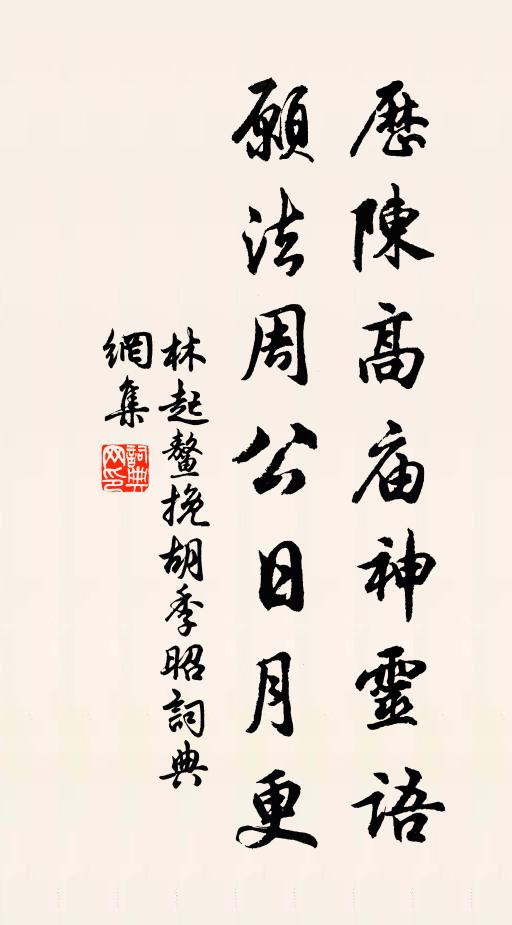 歷陳高庙神靈語
願法周公日月更
林起鼇挽胡季昭詞典
網集
詞典网印